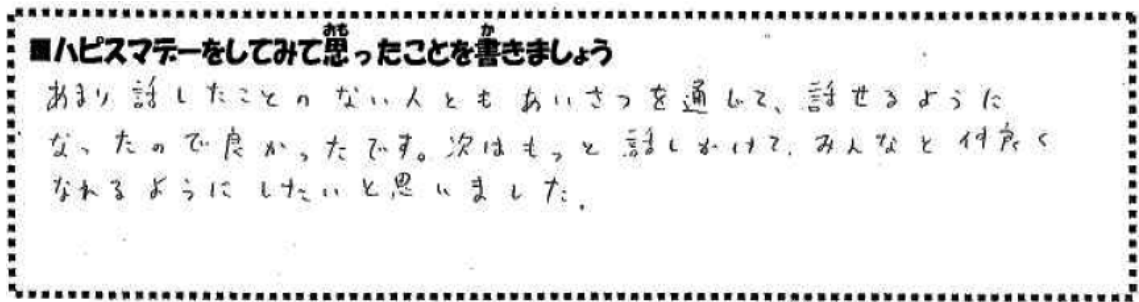 ■ハピスマデーをしてみて思ったことを書きましょう
あまり話したことのない人ともあいさつを通じて、話せるように
なったので良かったです。次はもっと話しかけて、みんなと仲良く
なれるようにしたいと思いました。